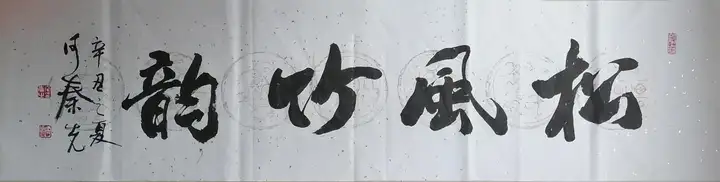 松風竹韵
辛丑之夏
何秦光